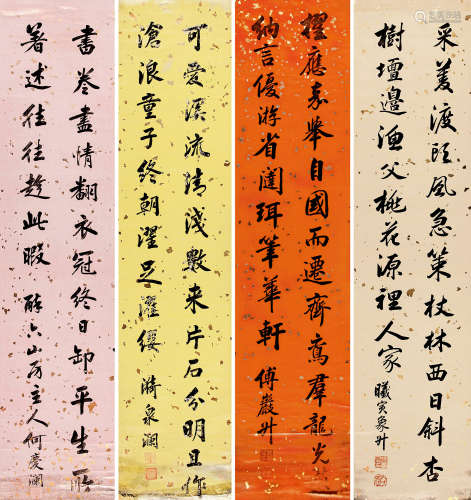 采菱渡頭風急策杖林西日斜杏
樹壇邊漁父桃花源裡人家
曦寅象升
擢應嘉舉自國而遷齊鳶群龍光
納言優游省闥珥筆華軒
傅巖升
可愛溪流清淺數来片石分明且作
滄浪童子終朝濯足濯纓
漪泉瀾
書卷盡情翻衣冠終日卸平生所
著述往往趁此暇
醉六山房主人何慶瀾